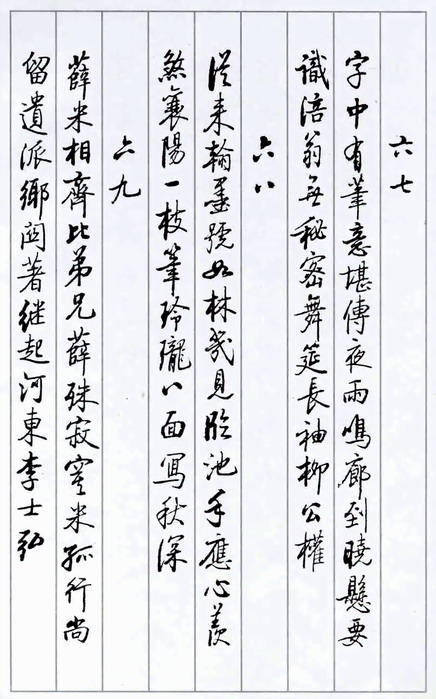 六七
字中有筆意堪傳夜雨鳴廊到曉懸要
識涪翁無秘密舞筵長袖柳公權
六八
從來翰墨號如林幾見臨池手應心羨
煞襄陽一枝筆玲瓏八面寫秋深
六九
薛米相齊比弟兄薛殊寂寞米孤行尚
留遺派鄉閭著繼起河東李士弘